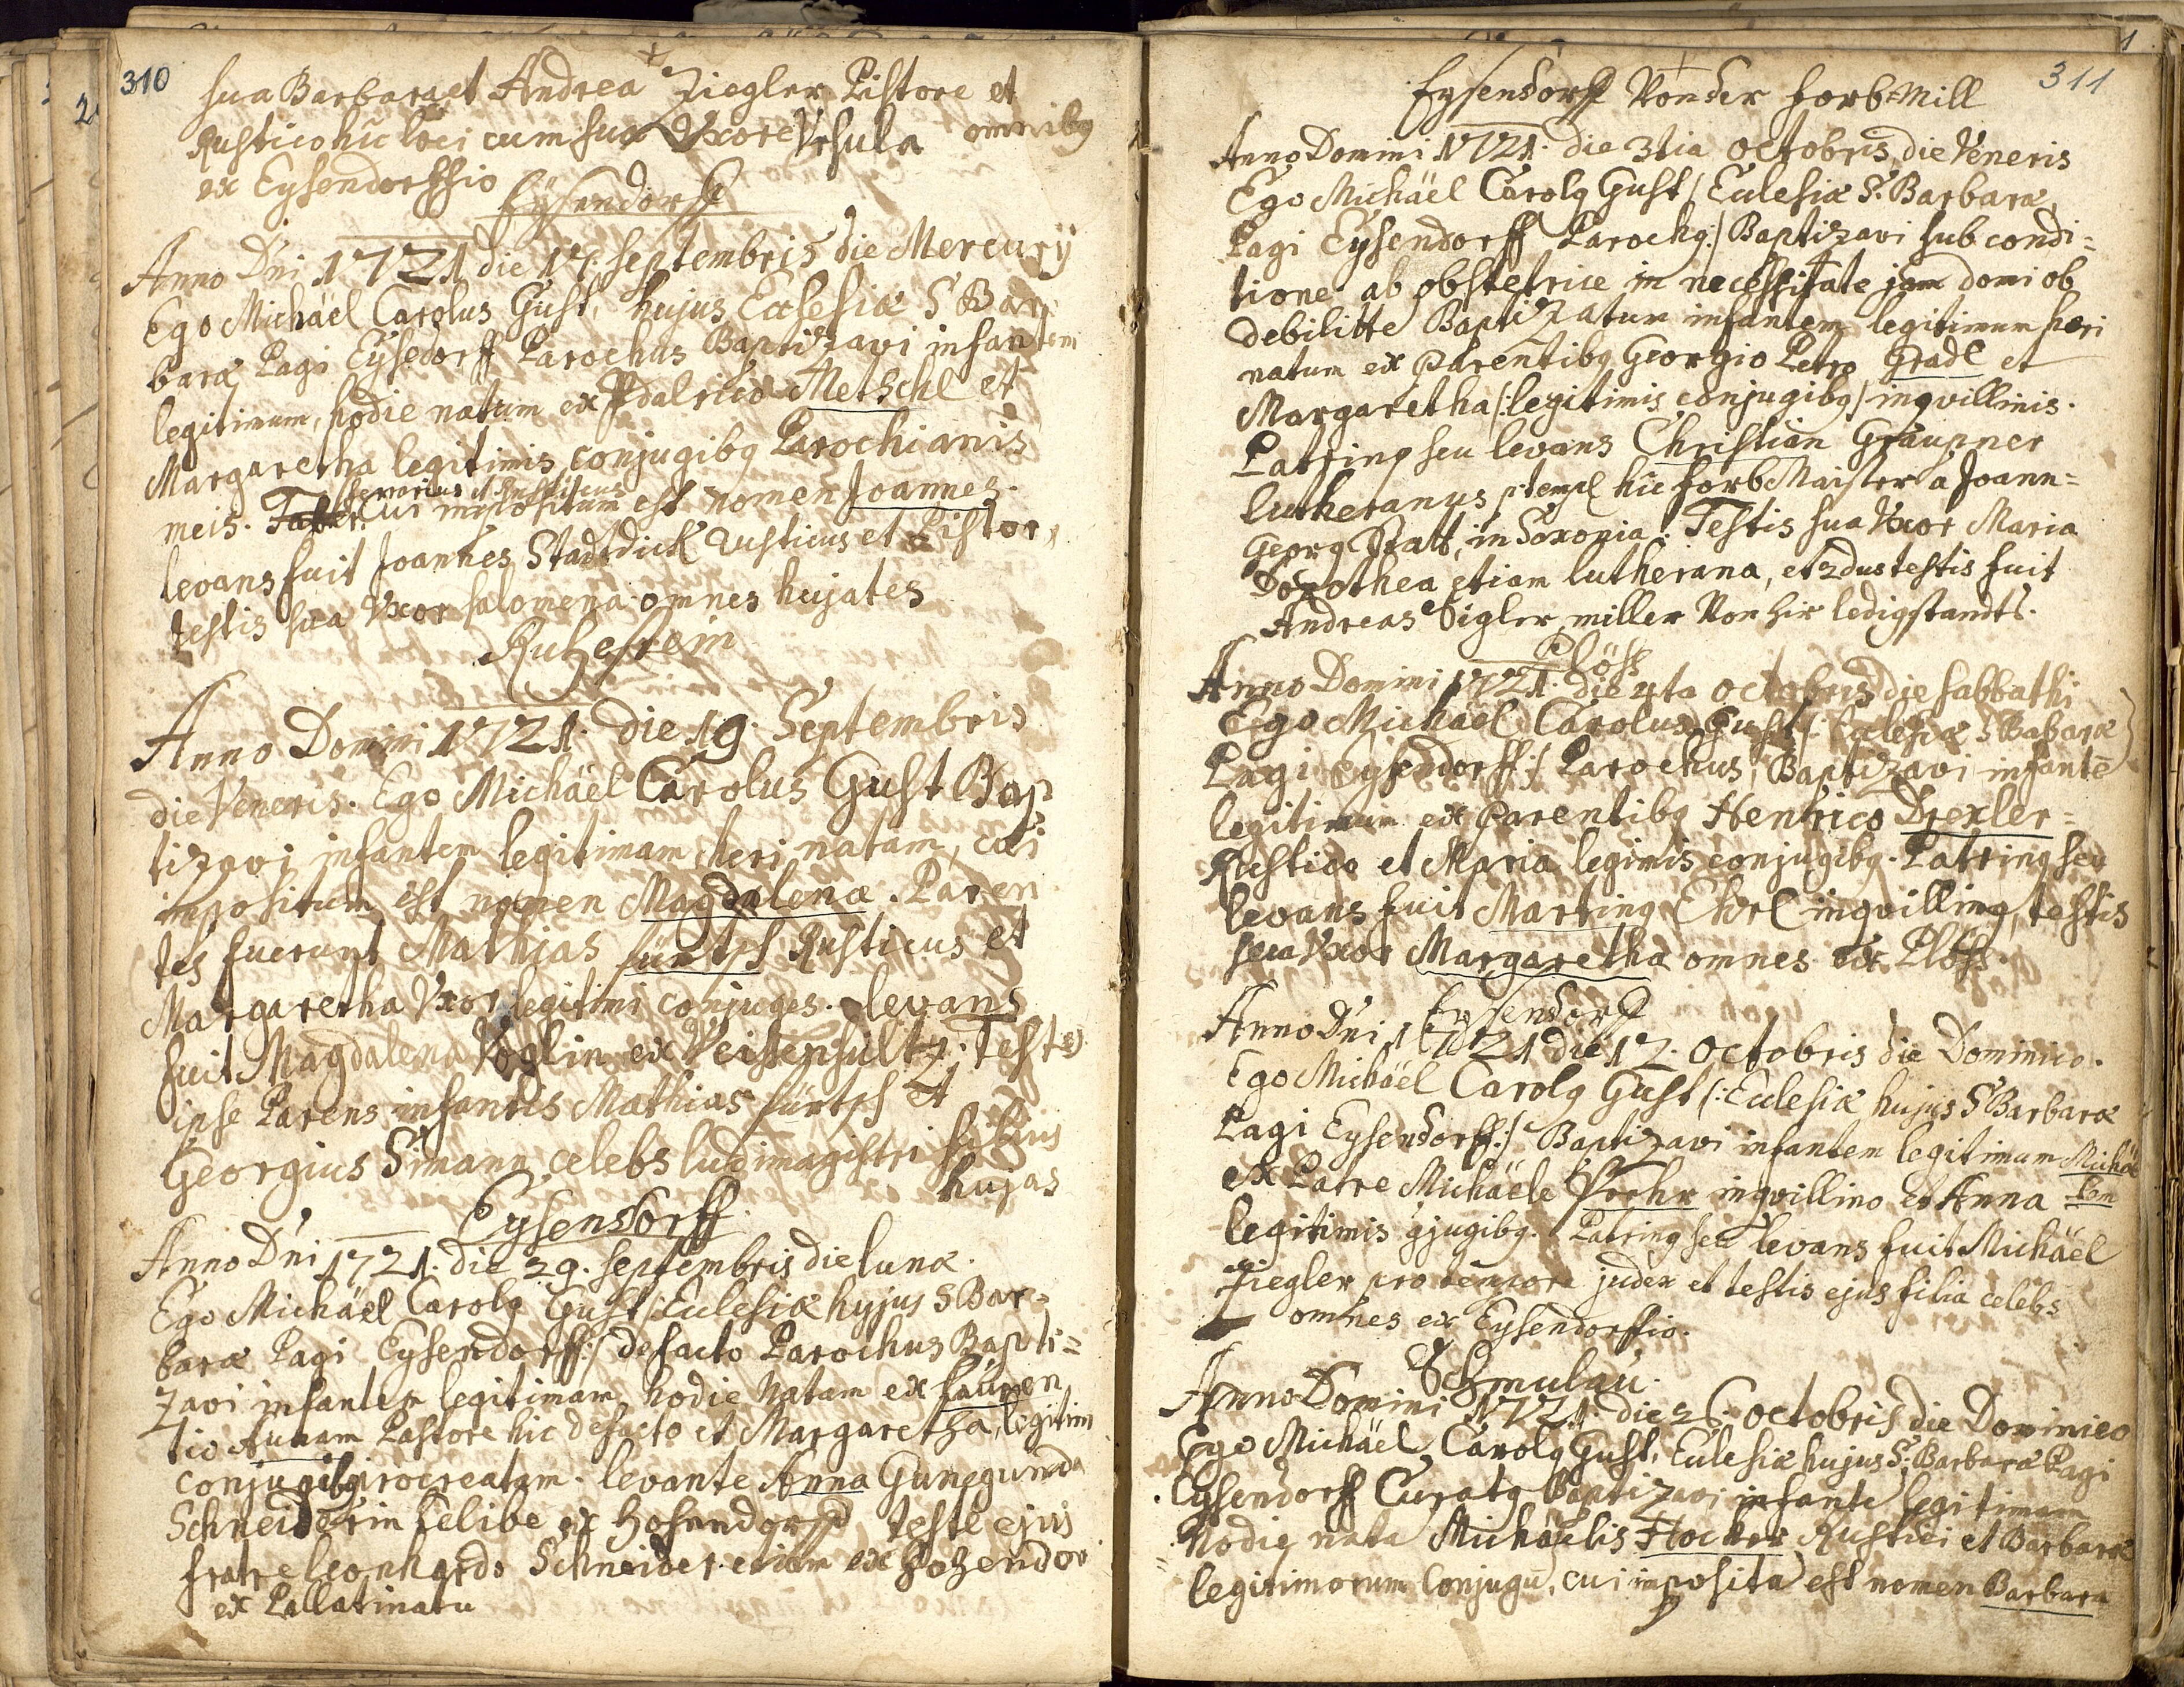 310
sua Barbara et Andrea Ziegler Pistore et
Rustico huc loci cum sua Uxore Ursula omnibq
ex Eysendorffio
Eysendorff
Anno Dni 1721 die 17. Septembris die Mercurÿ
Ego Michäel Carolus Gust, hujus Ecclesiæ S Bar
baræ Pagi Eysedorff Parochus Baptizavi infantem
legitimum, hodie natum ex Udalrico Metschl et
Margaretha legitimis conjugibq Parochianis
meis. cui impositum est nomen Joannes.
levans fuit Joannes Stadtdick rusticus et Pistor,
testis sua Uxor salomena omnes hujates
Anno Domini 1721. die 19. Septembris
die Veneris. Ego Michäel Carolus Gust Bap
tizavi infantem legitimam heri natam, cui
impositum est nomen Magdalena. Paren
tes fuerunt Mathias Rusticus et
Margaretha Uxor legitimi conjuges. levans
fuit Magdalena ex Testes
ipse Parens infantis Mathias et
Georgius Simann celebs ludimagistri filius
hujas
Eysendorff
Anno Dni 1721. die 29. septembris die lunæ.
Ego Michäel Carolq Gust /: Eclesiæ hujus S Bar=
baræ Pagi Eysendorff:/ defacto Parochus Bapti=
zavi infantem legitimam hodie Natam ex Lauren
tio Pastore hic defacto et Margaretha, legitim
conjugibq procreatam. levante Anna Gunegunda
Schneiderin Celibe ex teste ejus
fratre leonhardo Schneider etiam ex
ex Pallatinatu
311
Eysendorff Von der
Anno Domini 1721. die 3tia Octobris, die Veneris
Ego Michäel Carolq Gust / Eclesiæ S. Barbaræ
Pagi Eysendorff Parochq:/ Baptizavi sub condi=
tione ab obstetrice in necessitate jam domi ob
debilitte Baptizatum infantem legitimum heri
natum ex Parentibq Georgio Petro Gradl et
Margaretha /:legitimis conjugibq/ inqvillinis.
Patrinq seu levans Christian Graupner
lutheranus hic a Joann=
Georg Statt, in Saxonia. Testis sua Uxor Maria
Dorothea etiam lutherana, et 2dus testis fuit
Andreas Zigler, miller Von hir ledigstandts.
Plöss
Anno Domini 1721. die 4ta Octobris die sabbathi
Ego Michäel Carolus Gust /: Eclesiæ S Babaræ
Pagi Eysendorff:/ Parochus, Baptizavi infantē
legitimum ex Parentibq Henrico Drexler=
Rustico et Maria legimis conjugibq. Patrinq seu
levans fuit Martinq Ehrl inqvillinq, testis
sua Uxor Margaretha omnes ex Plöss.
Eysendorff
Anno Dni 1721 die 12. Octobris die Dominico.
Ego Michäel Carolq Gust /:Eclesiæ hujus S Barbaræ
Pagi Eysendorff:/ Baptizavi infantem legitimum Michäe
lem
ex Patre Michäele inqvillino et Anna
legitimis gjugibq. Patrinq seu levans fuit Michäel
Ziegler pro tempore judex et testis ejus filia celebs
omnes ex Eysendorffio.
Schmulau.
Anno Domini 1721. die 26. Octobris die Dominico
Ego Michäel Carolq Gust, Eclesiæ hujus S. Barbaræ Pagi
Eysendorff Curatq Baptizavi infantē legitimam
hodie nata Michäelis Hocker Rustici et Barbaræ
legitimorum Conjugū, cui imposita est nomen Barbara